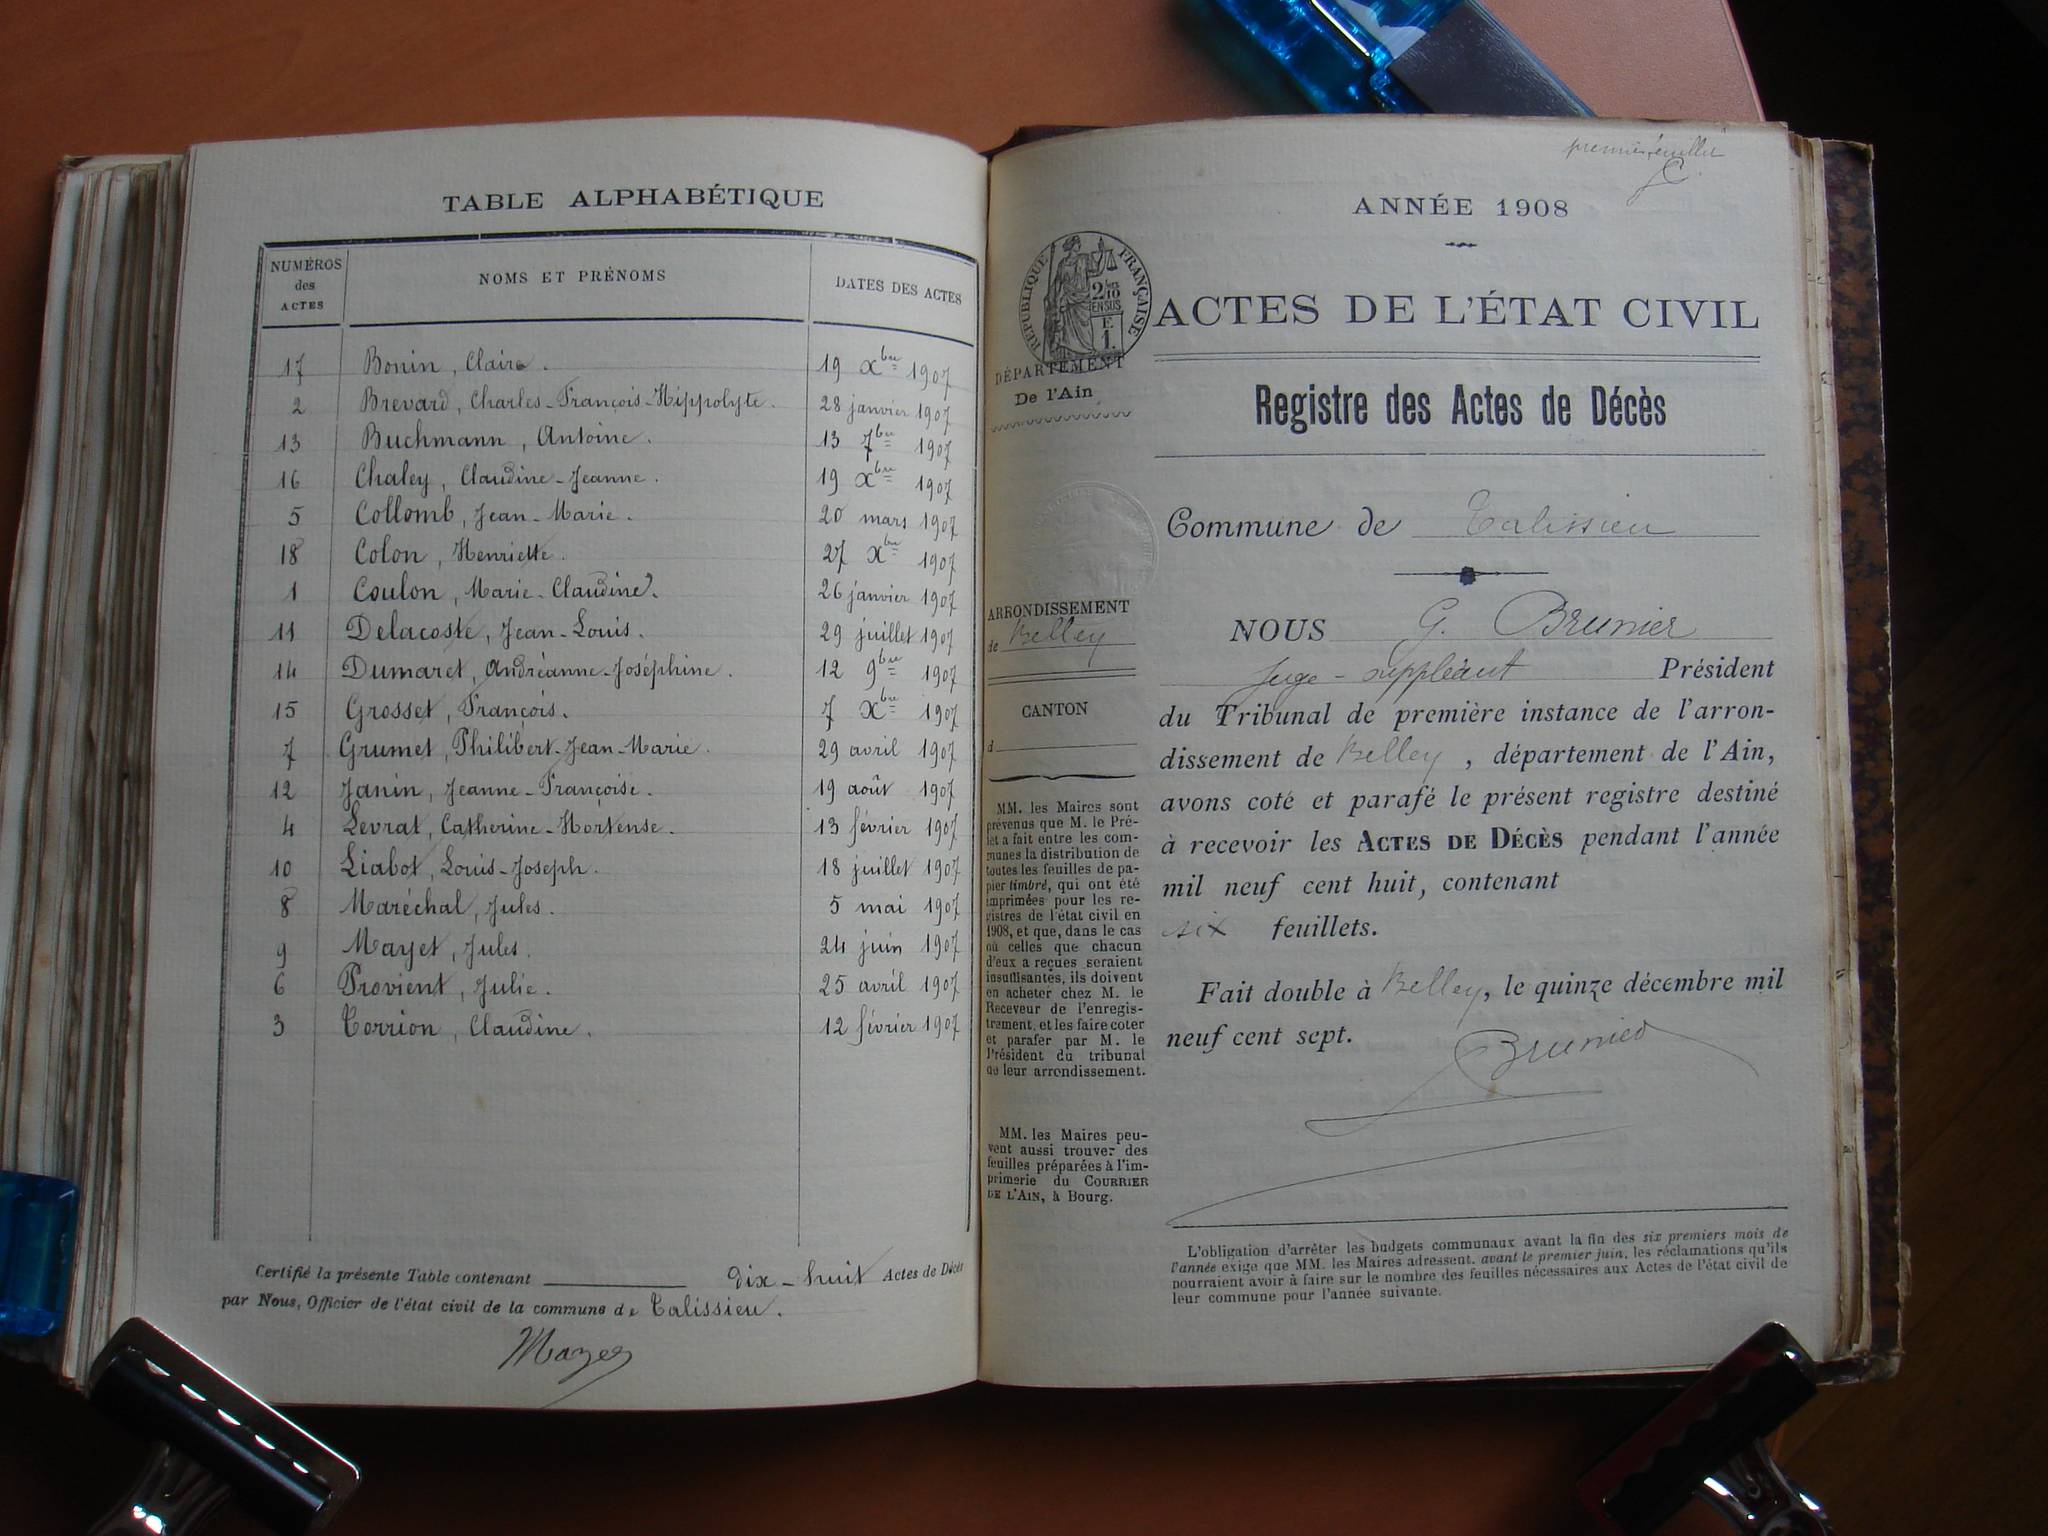 TABLE ALPHABÉTIQUE
NUMÉROS des ACTES NOMS ET PRÉNOMS DATES DES ACTES
17 Bonin, Claire. 19 Xbre 1907
2 Brevard, Charles-François-Hippolyte. 28 janvier 1907
13 Buchmann, Antoine. 13 7bre 1907
16 Chaley, Claudine-Jeanne. 19 Xbre 1907
5 Collomb, Jean-Marie. 20 mars 1907
18 Colon, Henriette. 27 Xbre 1907
1 Coulon, Marie-Claudine. 26 janvier 1907
11 Delacoste, Jean-Louis. 29 juillet 1907
14 Dumaret, Andréanne-Joséphine. 12 9bre 1907
15 Grosset, François. 7 Xbre 1907
7 Grumet, Philibert-Jean-Marie. 29 avril 1907
12 Janin, Jeanne-Françoise. 19 août 1907
4 Levrat, Catherine-Hortense. 13 février 1907
10 Liabot, Louis-Joseph. 18 juillet 1907
8 Maréchal, Jules. 5 mai 1907
9 Mayet, Jules. 24 juin 1907
6 Provient, Julie. 25 avril 1907
3 Torrion, Claudine. 12 février 1907
Certifié la présente Table contenant dix-huit Actes de Décès
par Nous, Officier de l'état civil de la commune de Talissieu.
ANNÉE 1908
RÉPUBLIQUE FRANÇAISE
2/10 EN SUS
F. 1.
DÉPARTEMENT
De l'Ain
ARRONDISSEMENT
de Belley
CANTON
d
MM. les Maires sont
prévenus que M. le Pré-
fet a fait entre les com-
munes la distribution de
toutes les feuilles de pa-
pier timbré, qui ont été
imprimées pour les re-
gistres de l'état civil en
1908, et que, dans le cas
où celles que chacun
d'eux a reçues seraient
insuffisantes, ils doivent
en acheter chez M. le
Receveur de l'enregis-
trement, et les faire coter
et parafer par M. le
Président du tribunal
de leur arrondissement.
MM. les Maires peu-
vent aussi trouver des
feuilles préparées à l'im-
primerie du COURRIER
DE L'AIN, à Bourg.
ACTES DE L'ÉTAT CIVIL
Registre des Actes de Décès
Commune de Talissieu
NOUS G. Brunier
Juge-suppléant Président
du Tribunal de première instance de l'arron-
dissement de Belley, département de l'Ain,
avons coté et parafé le présent registre destiné
à recevoir les ACTES DE DÉCÈS pendant l'année
mil neuf cent huit, contenant
six feuillets.
Fait double à Belley, le quinze décembre mil
neuf cent sept.
Brunier
L'obligation d'arrêter les budgets communaux avant la fin des six premiers mois de
l'année exige que MM. les Maires adressent, avant le premier juin, les réclamations qu'ils
pourraient avoir à faire sur le nombre des feuilles nécessaires aux Actes de l'état civil de
leur commune pour l'année suivante.